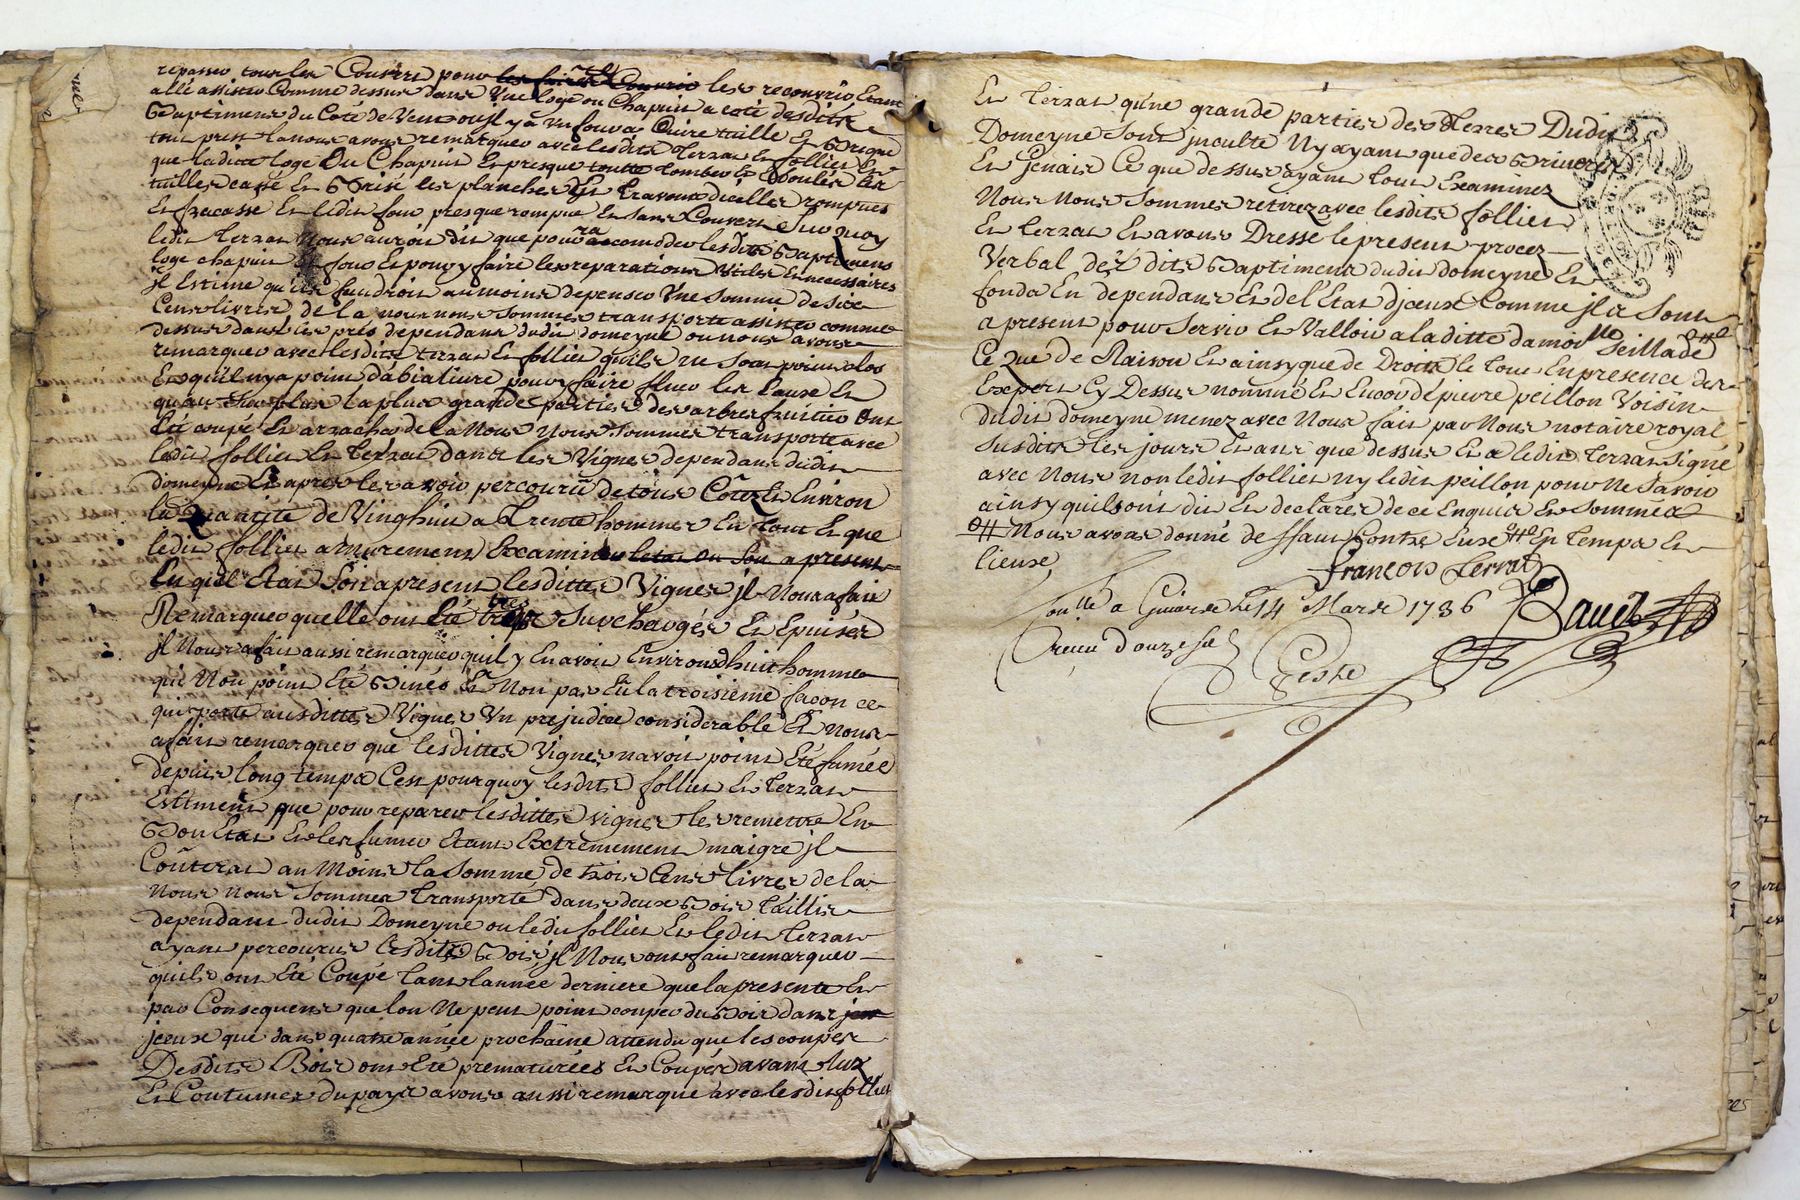 repasser tous les Couverts pour les faire Couvrir les recouvrir Etant
allé assisté Comme dessus dans Une loge ou Chapuis a coté desdits
Baptimens du Coté de Vent ou il y a Un four a Cuire tuille et Brique
tout prest la nous avons remarquer avec lesdits Terrat Et follier
que ladite loge Ou Chapuis Est presque toutte tombée Et Les
tuilles casse Et Brisé les planches Et travons dicelles rompues
Et fracasse Et ledit four presque rompue Et sans Couvert Sur quoy
ledit Terrat Nous auroit dit que pour racomoder lesdits Baptimens
loge chapuis Et four Et pour y faire les reparations Utiles Et necessaires
jl Estime qu'il faudroit au moins depenser Une Somme de Six
Cens livres de la nous nous Sommes transporté assisté comme
dessus dans les prés dependans dudit domeyne ou nous avons
remarquer avec lesdits terrat Et follier quils ne Sont point clos
Et quil nya point dabialiure pour faire fluer les Eaux Et
quau Surplus la plus grande parties des arbres fruitier Ont
Eté coupé Et arraché de la Nous Nous Sommes transporté avec
ledit follier Et Terrat dans les Vignes dependans dudit
domeyne Et apres les avoir percouru de tous Côtez Et Environ
la Quantité de Vinghuit a Trente hommes En tout Et que
ledit follier a murement Examiner letat ou Son a present
En quel Etat Son a present lesdittes Vignes jl Nous a fait
Remarquer quelle ont Eté tres Surchargés Et Epuisés
jl Nous a fait aussi remarquer quil y En avoit Environ dhuit hommes
qui Non point Eté Binés Et Non pas Eu la troisieme façon ce
qui porte ausdittes Vignes Un prejudice considerable Et nous
a fait remarquer que lesdittes Vignes navoit point Eté fumée
depuis long temps Cest pourquoy lesdits follier Et Terrat
Estiment que pour reparer lesdittes vignes les remettre En
Bon Etat Et les fumer Etant Extremement maigre jl
Coûterat au Moins la Somme de trois Cens livres de la
Nous Nous Sommes Transporté dans deux Bois Taillis
dependant dudit Domeyne ou ledit follier Et ledit Terrat
ayant percourus lesdits Bois jl Nous ont fait remarquer
quils ont Eté Coupé tant lannée derniere que la presente Et
par Consequens que lon Ne peut point couper du Bois dans jceu
jceux que dans quatre année prochaine attendu que les coupes
Desdits Bois ont Eté prematurées Et Coupés avant
Et Coutumes du pays avons aussi remarqué avec lesdits follier
Et Terrat qu'une grande parties des Terres Dudit
Domeyne Sont jnculte Ny ayant que des
Et Genais Ce que dessus ayant tout Examinez
Nous Nous Sommes retirez avec lesdits follier
Et terrat Et avons Dressé le present procez
Verbal desdits Baptimens dudit domeyne Et
fonds En dependans Et de l'Etat Djceux Comme jls Sont
a present pour Servir Et Valloir a laditte damoiselle Seillade
Ce Que de Raison Et ainsy que de Droit le tout En presence des
Expert Cy Dessus nommé Et Encor de pierre peillon Voisin
dudit domeyne menez avec Nous fait par Nous notaire royal
Susdits les jours Et an que dessus Et a ledit Terrat Signé
avec Nous non ledit follier ny ledit peillon pour Ne Savoir
ainsy quils ont dit Et declarés de ce Enquis Et Sommés
Nous avons donné deffaut Contre Eux En Temps Et
lieux,
françois Terrat
Conllé a le 14 Mars 1736
Receu Douze s